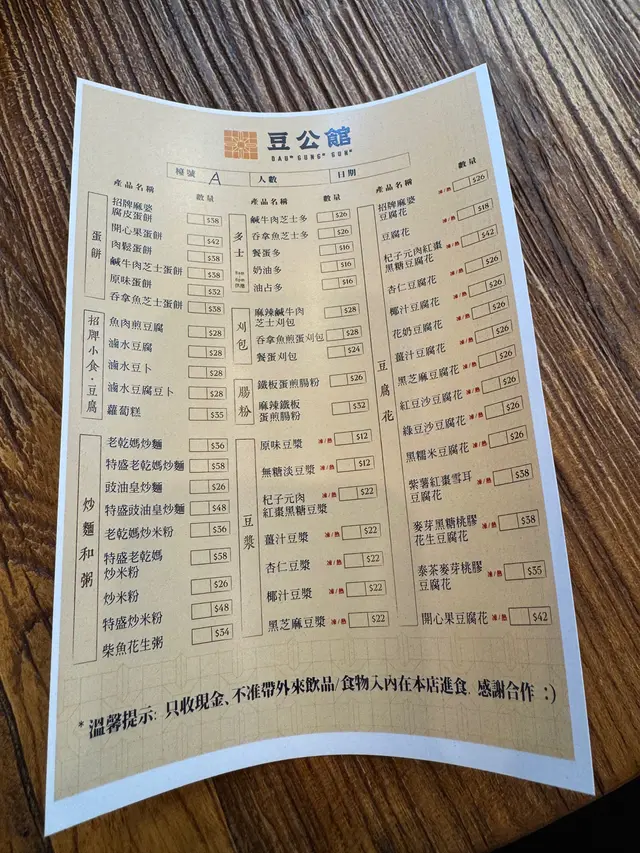 豆公館
DAUᴴ GUNGᴴ GUNᴴ
檯號 A 人數 日期
產品名稱 數量
蛋餅
招牌麻婆
腐皮蛋餅 $58
開心果蛋餅 $42
肉鬆蛋餅 $38
鹹牛肉芝士蛋餅 $38
原味蛋餅 $32
吞拿魚芝士蛋餅 $38
招牌小食·豆腐
魚肉煎豆腐 $28
滷水豆腐 $28
滷水豆卜 $28
滷水豆腐豆卜 $28
蘿蔔糕 $35
炒麵和粥
老乾媽炒麵 $36
特盛老乾媽炒麵 $58
豉油皇炒麵 $26
特盛豉油皇炒麵 $48
老乾媽炒米粉 $36
特盛老乾媽
炒米粉 $58
炒米粉 $26
特盛炒米粉 $48
柴魚花生粥 $34
產品名稱 數量
多士
供應
鹹牛肉芝士多 $26
吞拿魚芝士多 $26
餐蛋多 $16
奶油多 $16
油占多 $16
刈包
麻辣鹹牛肉
芝士刈包 $28
吞拿魚煎蛋刈包 $28
餐蛋刈包 $24
腸粉
鐵板蛋煎腸粉 $26
麻辣鐵板
蛋煎腸粉 $32
豆漿
原味豆漿 凍/熱 $12
無糖淡豆漿 凍/熱 $12
杞子元肉
紅棗黑糖豆漿 凍/熱 $22
薑汁豆漿 凍/熱 $22
杏仁豆漿 凍/熱 $22
椰汁豆漿 凍/熱 $22
黑芝麻豆漿 凍/熱 $22
產品名稱 數量
豆腐花
招牌麻婆
豆腐花 凍/熱 $26
豆腐花 凍/熱 $18
杞子元肉紅棗
黑糖豆腐花 凍/熱 $42
杏仁豆腐花 凍/熱 $26
椰汁豆腐花 凍/熱 $26
花奶豆腐花 凍/熱 $26
薑汁豆腐花 凍/熱 $26
黑芝麻豆腐花 凍/熱 $26
紅豆沙豆腐花 凍/熱 $26
綠豆沙豆腐花 凍/熱 $26
黑糯米豆腐花 凍/熱 $26
紫薯紅棗雪耳
豆腐花 凍/熱 $38
麥芽黑糖桃膠
花生豆腐花 凍/熱 $38
泰茶麥芽桃膠
豆腐花 凍/熱 $35
開心果豆腐花 凍/熱 $42
*溫馨提示: 只收現金、不准帶外來飲品/食物入內在本店進食, 感謝合作 :)